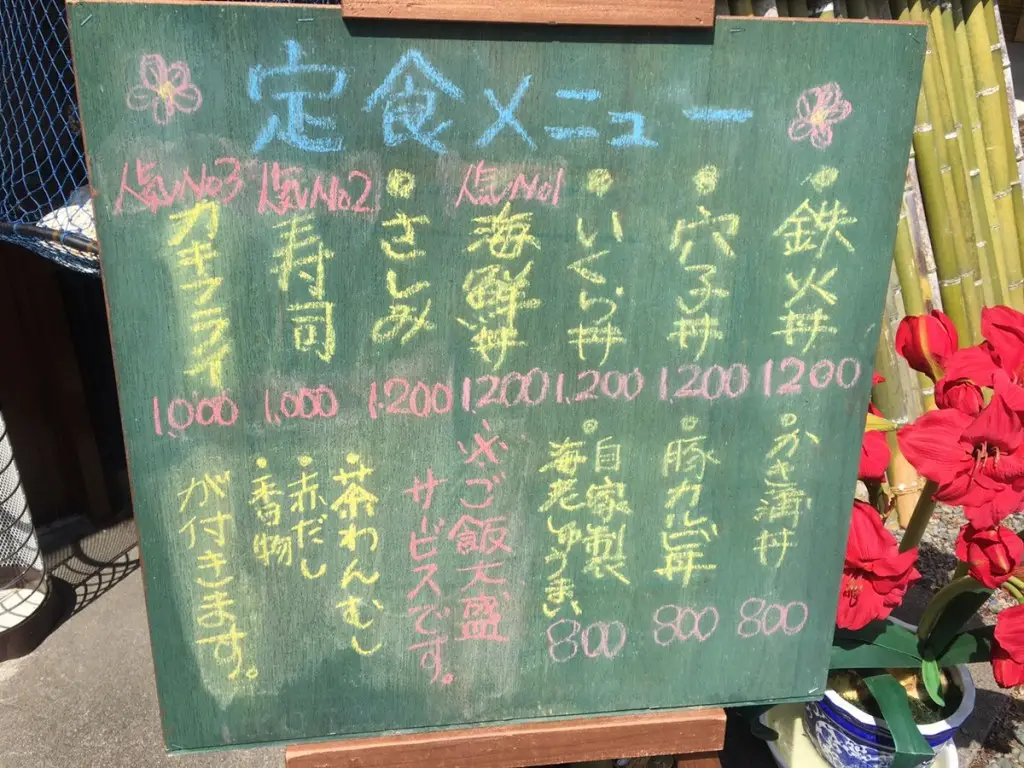 定食メニュー
・鉄火丼
1200
・穴子丼
1,200
・いくら丼
1,200
人気No1
海鮮丼
1,200
・さしみ
1,200
人気No2
寿司
1,000
人気No3
カキフライ
1,000
・かき揚丼
800
・豚カルビ丼
800
・自家製
海老しゅうまい
800
※ご飯大盛
サービスです。
・茶わんむし
・赤だし
・香物
が付きます。